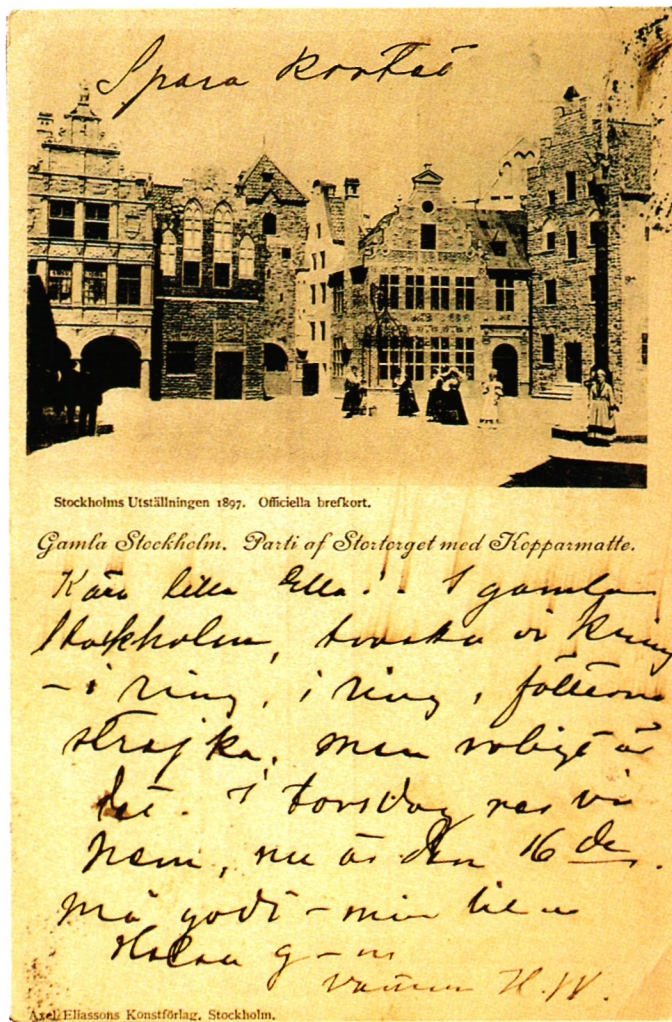 Spara kortet
Stockholms Utställningen 1897. Officiella brefkort.
Gamla Stockholm. Parti af Stortorget med Kopparmatte.
Kära lilla Ella! I gamla
Stockholm, traska vi kring
– i ring, i ring, fötterna
strejka, men roligt är
det. I torsdag res vi
hem, nu är den 16 de.
må godt – min
Helsa
vännen H. W.
Axel Eliassons Konstförlag, Stockholm.